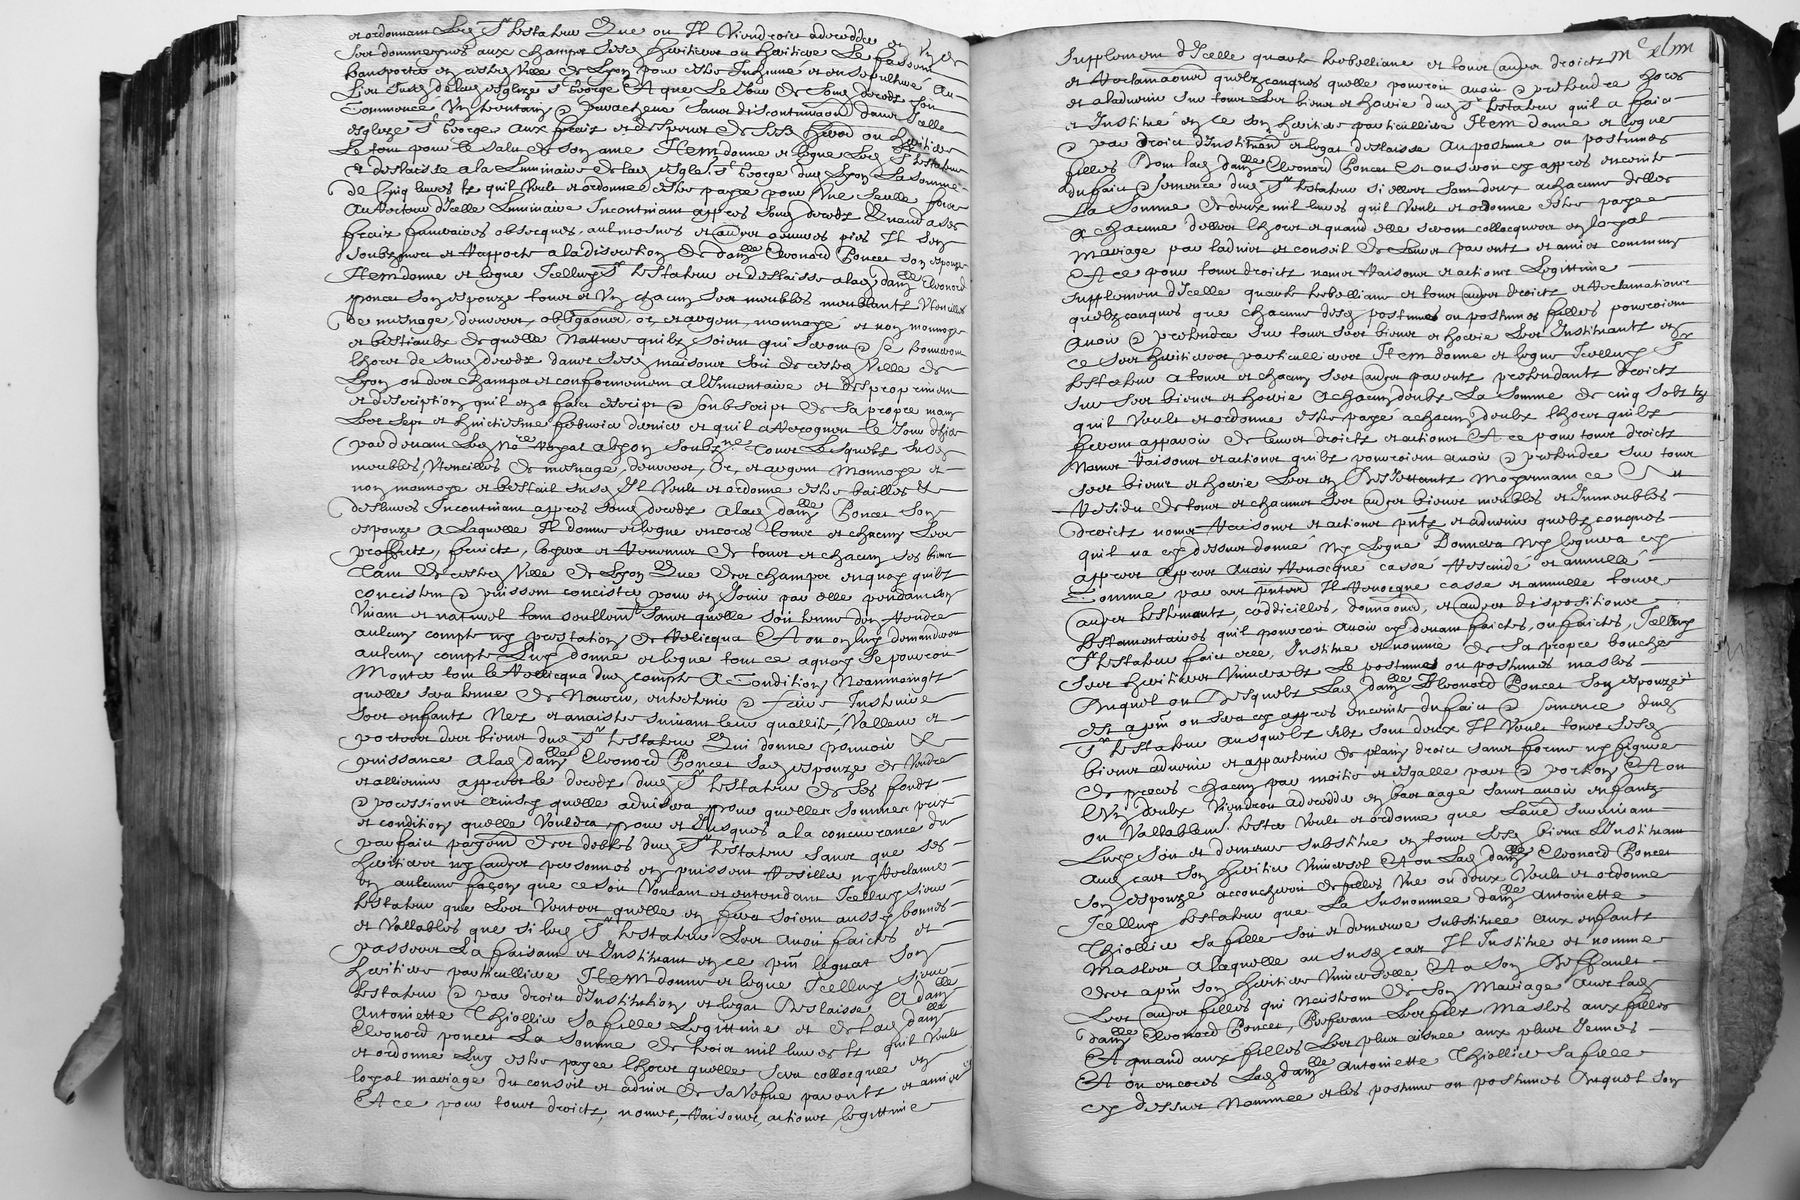 et ordonnant Led Sr testateur Que ou Il Viendroit a decedder en Un de
Ses dommaynes aux champs Sesd heritiers ou heritiere Le fassent
transporter en cested Ville de Lyon pour estre Inhumé et en sepulture
Lieu Susd de lad esglize St George Et que Le Jour de Sond decedz son
Commence Un trentain & parachevé Sans discontinuation dans Icelle
esglize St George aux fraiz et despens de Sesd heritiers ou heritiere
Le tout pour le Salut de Son ame Item donne et legue Led Sr testateur
& deslaisse a la Luminaire de lad esglise St George dud Lyon La somme
de Cinq livres tz quil Veult et ordonne estre payee pour Une Seulle fois
Au Recteur d'Icelle Luminaire Incontinant appres Sond decedz Quand a ses
fraiz funeraires obseques, aulmosnes et autres oeuvres pies Il Sen
Soubzmet et Rapporte a la discretion de damlle Eleonord Poncet son espouze
Item donne et legue Icelluy Sr testateur et deslaisse a lad damlle Eleonord
poncet son espouze tous et Un chacun Ses meubles meublants Utencilles
de mesnage, denrees, obligaons, or, et argent, monnoyé et non monnoyé
et bestiaulx de quelle Nature quilz soient qui Seront & se trouveront
Lhors de Sond decedz dans Sesd maisons Soit de cested Ville de
Lyon ou des champs et conformement a L'Inventaire et
et description quil en a faict escript & soubscript de Sa propre main
Les Sept et huictiesme febvrier dernier et quil a Recogneu le Jour d'hier
par devant Led No.re Royal a Lyon Soubz.né Tous Lesquelz Susd
meubles, Utencilles de mesnage, denrees, Or, et argent Monnoyé et
non monnoye et bestail Susd Il Veult et ordonne estre bailles &
deslivres Incontinant appres Sond decedz a lad damlle Poncet Son
espouze A Laquelle Il donne et legue encores tous et chacuns Les
proffictz, fruictz, loyers et Revenus de tous et chacuns Ses biens
Tant de cested Ville de Lyon Que des champs en quoy quilz
concistent & puissent concister pour en Jouir par elle pendant son
Vivant et naturel tant seullemt Sans quelle Soit tenue d'en Rendre
aulcun compte ny prestation de Relicqua Et ou on luy demanderoit
aulcun compte Luy donne et legue tout ce a quoy Se pourroit
Monter tout le Relicqua dud compte A Condition Neantmoingtz
quelle Sera tenue de Nourrir, entretenir & faire Instruire
Ses enfantz Nez et a naistre suivant leur quallité, Valleur et
portées des biens dud Sr testateur Qui donne pouvoir &
puissance a lad damlle Eleonord Poncet Sad espouze de Vendre
et alliener appres le decedz dud Sr testateur de Ses fondz
& pocessions Ainsy quelle advisera pour quelles Sommes prix
et condition quelle Vouldra pour et Jusques a la concurrance du
parfaict payemt des debtes dud Sr testateur Sans que Ses
heritiers ny autres personnes en puissent Reveiller ny Reclamer
En aulcune façon que ce soit Voulant et entendant Icelluy Sieur
testateur que Les Ventes quelle en fera Soient aussy bonnes
et Vallables que si led Sr testateur Les avoit faictes et
passees La faisant et Instituant en ce pnt legnat Son
heritiere particulliere Item donne et legue Icelluy Sieur
testateur & par droict d'Institution et legat Deslaisse A damlle
Antoinette Thiollier Sa fille Legittime et de lad damlle
Eleonord poncet La Somme de trois mil livres tz quil Veult
et ordonne Luy estre payee Lhors quelle Sera collocquee en
loyal mariage du conseil et advis de sa Vefve parentz et amis
Et ce pour tous droictz, noms, Raisons, actions, legittime
Supplement d'Icelle quarte trebellianne et tous autres droictz
et Reclamaons quelzconques quelle pourroit avoir & pretendre hores
et a ladvenir Sur tous Les biens et hoirie dud Sr testateur quil a faict
et Institué en ce Son heritiere particulliere Item donne et legue
& par droict d'Institution et legat deslaisse Au postume ou postumes
filles Dont lad damlle Eleonord Poncet Est ou seroit cy appres enceinte
du faict & semence dud Sr testateur Si elles Sont deux a chacune delles
La Somme de deux mil livres quil Veult et ordonne estre payee
A chacune delles Lhors et quand elle seront collocquees en loyal
mariage par ladvis et conseil de Leurs parents et amis communs
Et ce pour tous droictz noms Raisons et actions Legittime
Supplement d'Icelle quarte trebellianne et tous autres droictz et Reclamations
quelzconques que chacune desd postumes ou postumes filles pourroient
Avoir & pretendre Sur tous Ses biens et hoirie Les Instituantz en
ce Ses heritieres particullieres Item donne et legue Icelluy Sr
testateur A tous et chacuns Ses autres parentz pretendantz droictz
Sur Ses biens et hoirie A chacun d'eulx La Somme de cinq Solz tz
quil Veult et ordonne estre payé a chacun deulx Lhors quilz
feront apparoir de leurs droictz et actions Et ce pour tous droictz
Noms Raisons et actions quilz pourroient avoir & pretendre Sur tous
Ses biens et hoirie Les en Desjettantz Moyennant ce Du
Residu de tous et chacuns Ses autres biens meubles et Immeubles
droictz noms Raisons et actions pntz et advenir quelzconques
quil na cy dessus donné Ny Legué Donnera Ny leguera cy
appres Appres avoir Revocqué cassé Rescindé et annullé
Comme par ces pntes Il Revocque casse et annulle tous
autres testamentz, coddicilles, donnaons, et autres dispositions
testamentaires quil pourroit avoir cy devant faictes, ou faictz, Icelluy
Sr testateur faict crée, Institue et nomme de Sa propre bouche
Ses heritiers Universelz Le postume ou postumes masles
Duquel ou Desquelz Lad damlle Eleonord Poncet Son espouze
est a pnt ou sera cy appres enceinte du faict & semence dud
Sr testateur Ausquelz silz Sont deux Il Veult tous Sesd
biens advenir et appartenir de plain droict sans forme ny figure
de proces chacun par moitié et esgalle part & portion Et ou
L'Un deulx Viendroit a decedder en bas aage Sans avoir enfantz
ou Vallablemt tester Veult et ordonne que Lautre Survivant
Luy Soit et demeure substitué en tous Sesd biens L'Instituant
Aud cas Son heritier Universel Et ou Lad damlle Eleonord Poncet
Son espouze accoucheroit de filles Une ou deux Veult et ordonne
Icelluy testateur que La Susnommee damlle Antoinette
Thiollier Sa fille Soit et demeure substituee Aux enfantz
Masles A laquelle au susd cas Il Institue et nomme
des a pnt Son heritiere Universelle Et a Son Deffault
Les autres filles qui Naistront de Son Mariage Avec lad
damlle Eleonord Poncet, Preferant Les filz Masles aux filles
Et quand aux filles Les plus aisnee aux plus Jeunes
Et ou encores Lad damlle Antoinette Thiollier Sa fille
cy dessus Nommee et les postume ou postumes Duquel Son